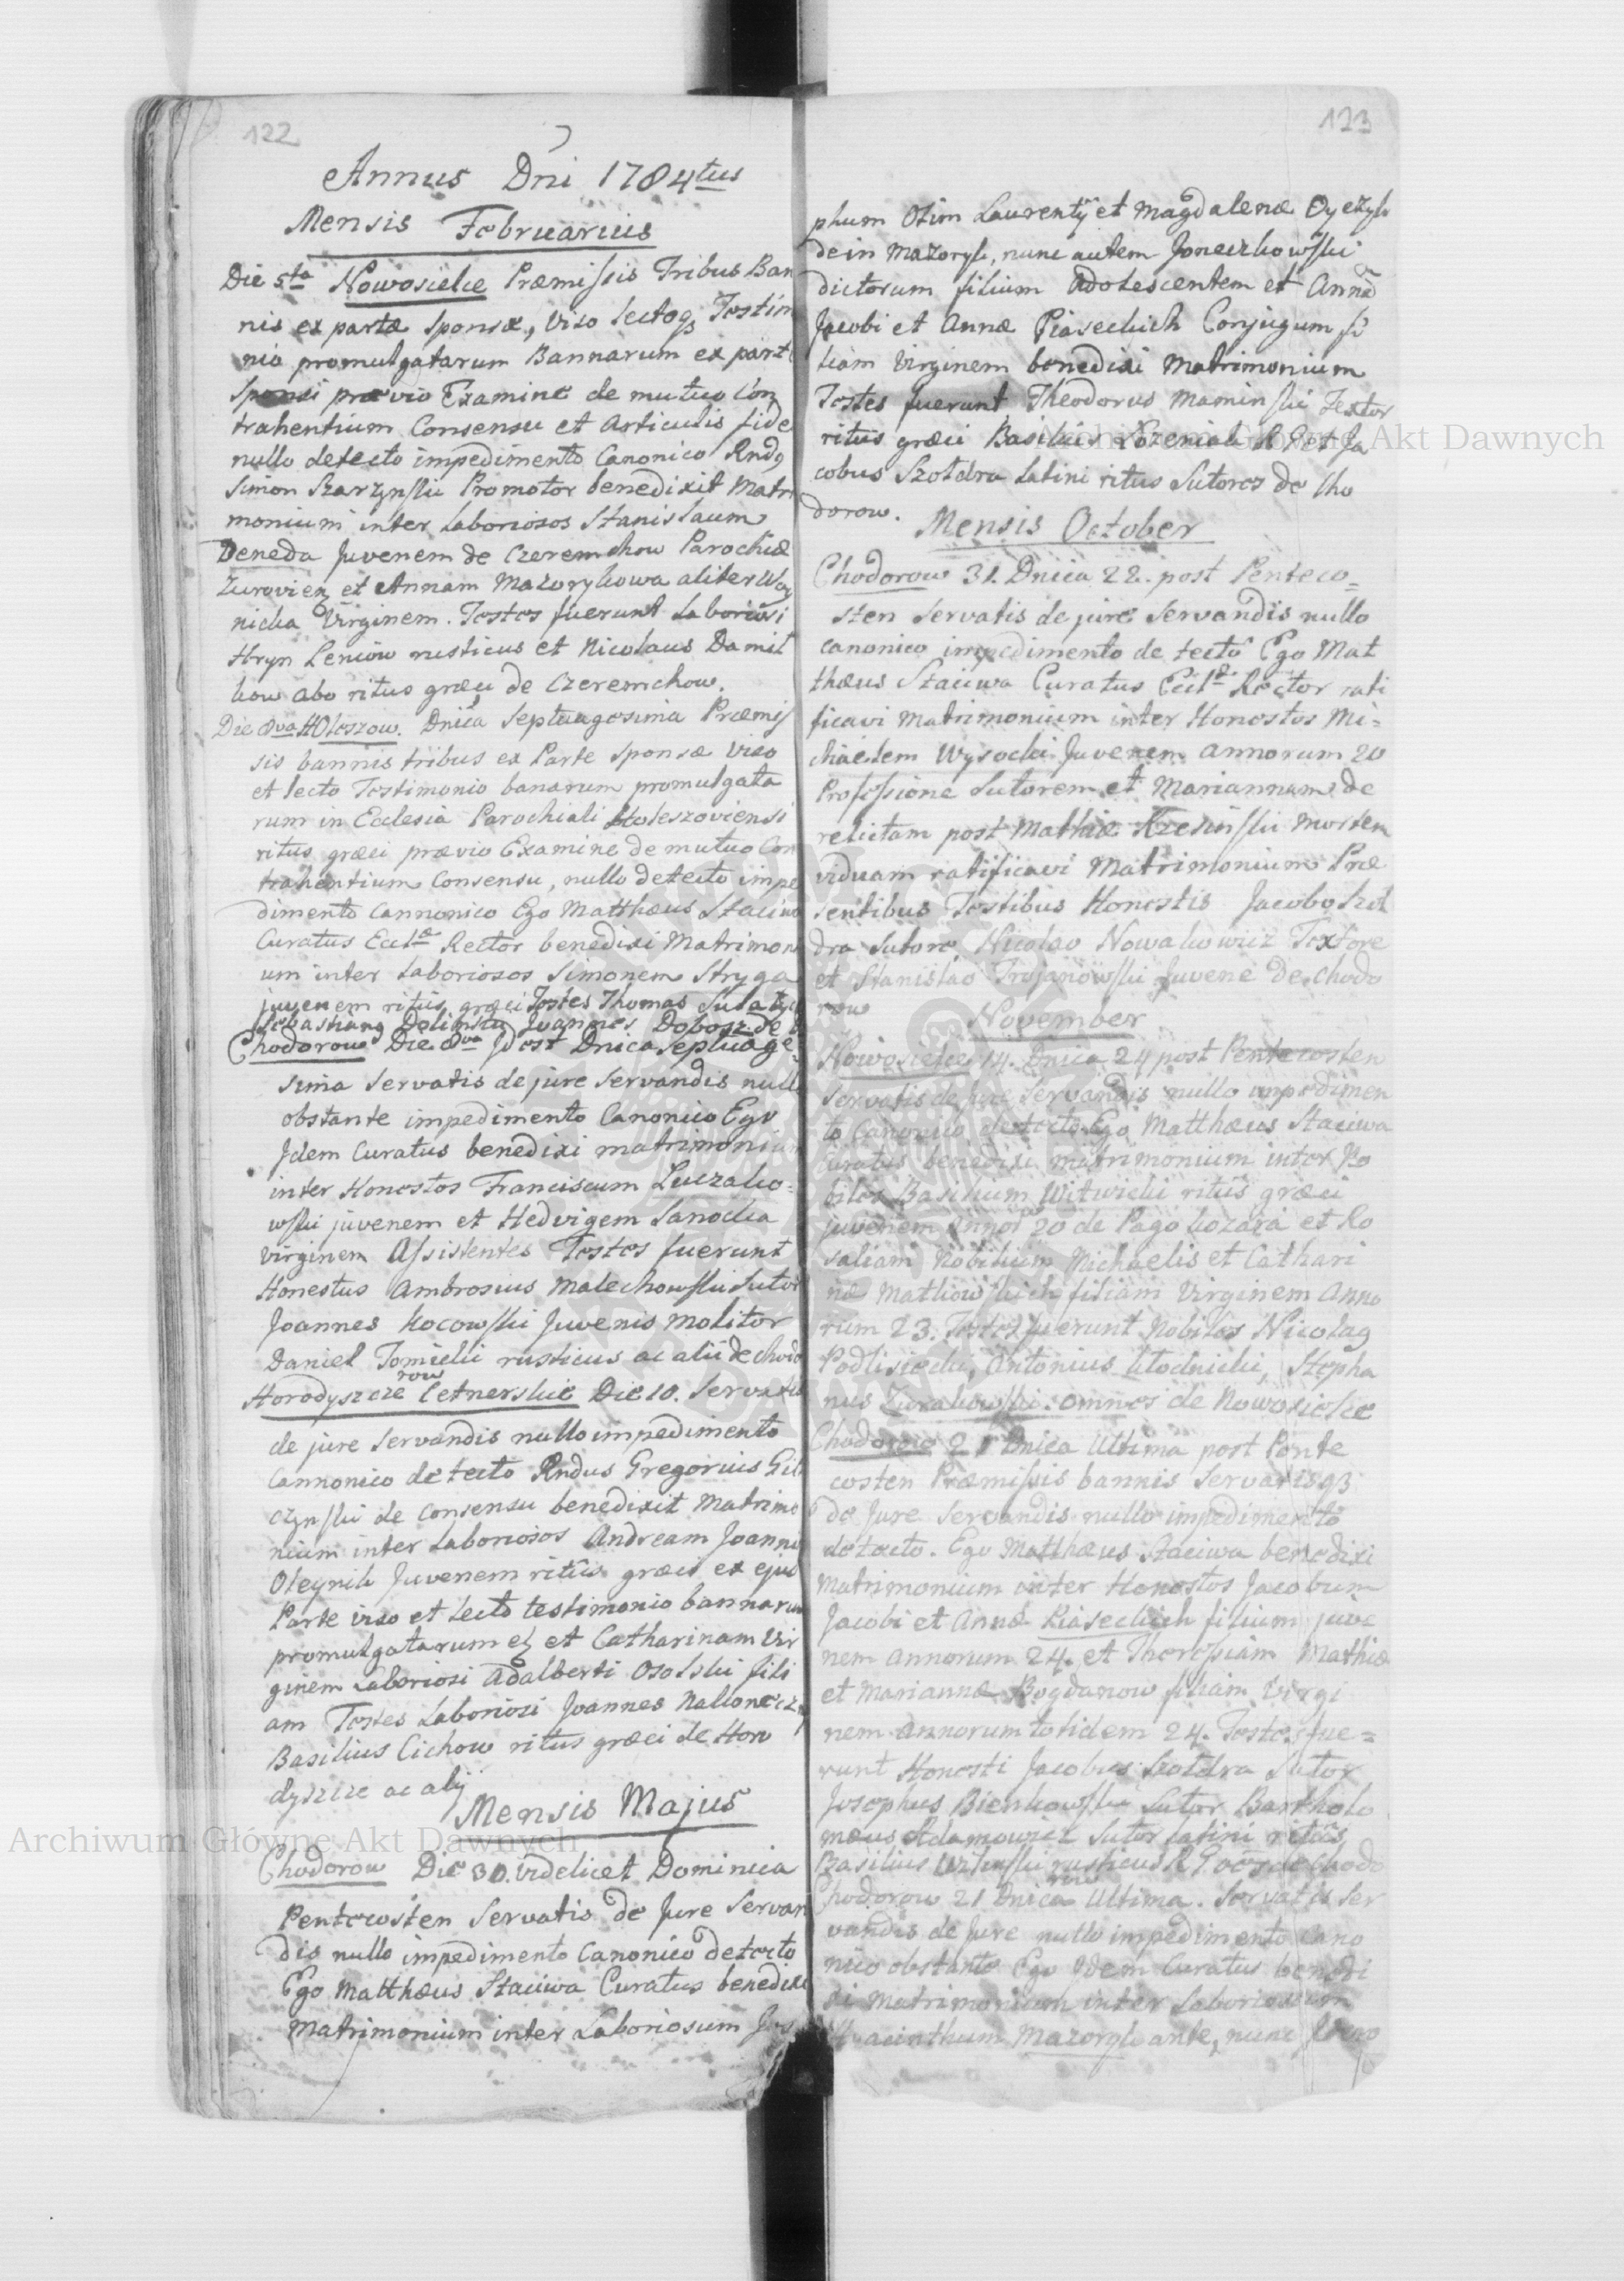 122
Annus Dni 1784tus
Mensis Februarius
Die 5ta Nowosielce Præmissis Tribus Ban
nis ex partæ Sponsæ, viso lectoq Testim
nio promulgatarum Bannarum ex part
Sponsi prævio Examine de mutuo Con
trahentium Consensu et Articulis fide
nullo detecto impedimento Canonico Rnd9
Simon Szarzynski Promotor benedixit Matri
monium inter Laboriosos Stanislaum
Deneda Juvenem de Czeremchow Parochiæ
et Annam Mazorykowa aliter
nicka Virginem. Testes fuerunt Laboriosi
Hryn Leniow rusticus et Nicolaus Damil
kow abo ritus græci de Czeremchow.
Die 8va Holeszow. Dnica Septuagesima Præmis
sis bannis tribus ex Parte Sponsæ viso
et lecto Testimonio banarum promulgata
rum in Ecclesia Parochiali Holeszoviensi
ritus græci prævio Examine de mutuo Con
trahentium Consensu, nullo detecto impe
dimento Cannonico Ego Matthæus Staciwa
Curatus Eccl Rector benedixi Matrimoni
um inter Laboriosos Simonem Stryga
juvenem ritus græci Testes Thomas
Joannes Dobosz de
Chodorow Die 8va post Dnica Septuage
sima Servatis de jure Servandis null
obstante impedimento Canonico Ego
Idem Curatus benedixi matrimonium
inter Honestos Franciscum Luczako=
wski juvenem et Hedvigem Sanocka
virginem Assistentes Testes fuerunt
Honestus Ambrosius Malechowski Sutor
Joannes Kocowski Juvenis Molitor
Daniel Tomicki rusticus ac alii de Chodo
row
Horodyszcze Cetnerskie Die 10. Servatis
de jure Servandis nullo impedimento
Cannonico detecto Rndus Gregorius Gil
czynski de Consensu benedixit Matrimo
nium inter Laboriosos Andream Joannis
Oleynik Juvenem ritûs græci ex ejus
Parte viso et lecto testimonio bannarum
promulgatarum et Catharinam Vir
ginem Laboriosi Adalberti Osolski fili
am Testes Laboriosi Joannes
Basilius Cichow ritus græci de Horo
dyszcze ac alij
Mensis Majus
Chodorow Die 30. videlicet Dominica
Pentecosten Servatis de Jure Servan
dis nullo impedimento Canonico detecto
Ego Matthæus Staciwa Curatus benedixi
Matrimonium inter Laboriosum Jos
123
phum Olim Laurentij et Magdalenæ
dein Mazoryk, nunc autem Joneczkowski
dictorum filium Adolescentem et Annã
Jacobi et Annæ Piaseckich Conjugum fi
liam Virginem benedixi Matrimonium
Testes fuerunt Theodorus Maminski Textor
ritus græci Basilius et Ja
cobus Szoldra Latini ritus Sutores de Cho
dorow.
Mensis October
Chodorow 31. Dnica 22. post Penteco=
sten Servatis de jure Servandis nullo
canonico impedimento detecto Ego Mat
thæus Staciwa Curatus Eccl Rector rati
ficavi Matrimonium inter Honestos Mi=
chaelem Wysocki Juvenem annorum 20
Professione Sutorem et Mariannam de
relictam post Mathiæ mortem
viduam ratificavi Matrimonium Præ
sentibus Testibus Honestis Jacobo Szol
dra Sutore, Nicolao Nowakowicz Textore
et Stanislao Trojanowski Juvene de Chodo
row
November
Nowosielce 14. Dnica 24 post Pentecosten
Servatis de jure Servandis nullo impedimen
to Canonico detecto Ego Matthæus Staciwa
Curatus benedixi matrimonium inter No
biles Basilium Witwicki ritûs græci
juvenem 20 de Pago Kozara et Ro
saliam Nobilium Michaelis et Cathari
næ filiam Virginem Anno
rum 23. Testes fuerunt Nobiles Nicolaq
Podlisiecki, Antonius Klodnicki, Stepha
nus Zurakowski. omnes de Nowosielce
Chodorow 21 Dnica Ultima post Pente
costen Præmissis bannis Servatisq3
de Jure Servandis nullo impedimento
detecto. Ego Matthæus Staciwa benedixi
Matrimonium inter Honestos Jacobum
Jacobi et Annæ Piaseckich filium juve
nem annorum 24. et Theressiam Mathiæ
et Mariannæ Bogdanow filiam Virgi
nem annorum totidem 24. Testes fue=
runt Honesti Jacobus Szoldra Sutor
Josephus Bienkowski Sutor Bartholo
mæus Adamowicz Sutor Latini ritûs
Basilius rusticus R G de Chodo
row
Chodorow 21 Dnica Ultima. Servatis Ser
vandis de Jure nullo impedimento Cano
nico obstante Ego Idem Curatus benedi
xi Matrimonium inter Laboriosum
Hyacinthum Mazoryk ante, nunc
Archiwum Główne Akt Dawnych
Archiwum Główne Akt Dawnych